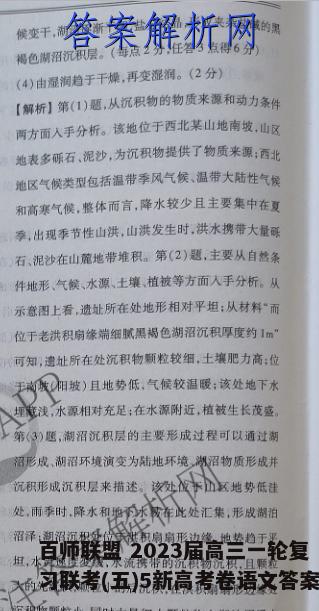 答案解析网
候变干,湖
的黑
褐色湖沼沉积层。(每点2分,任答3点得6分)
(4)由湿润趋于干燥,再变湿润。(2分)
【解析】第(1)题,从沉积物的物质来源和动力条件
两方面入手分析。该地位于西北某山地南坡,山区
地表多砾石、泥沙,为沉积物提供了物质来源;西北
地区气候类型包括温带季风气候、温带大陆性气候
和高寒气候,整体而言,降水较少且主要集中在夏
季,出现季节性山洪,山洪发生时,洪水携带大量砾
石、泥沙在山麓地带堆积。第(2)题,主要从自然条
件地形、气候、水源、土壤、植被等方面入手分析。从
示意图上看,遗址所在处地形相对平坦;从材料“而
位于老洪积扇缘端细腻黑褐色湖沼沉积厚度约1m”
可知,遗址所在处沉积物颗粒较细,土壤肥力高;位
于南坡(阳坡)且地势低,气候较温暖;该处地下水
埋藏浅,水源相对充足;在水源附近,植被生长茂盛。
第(3)题,湖沼沉积层的主要形成过程可以通过湖
沼形成、湖沼环境演变为陆地环境、湖沼物质形成并
沉积形成沉积层来描述。该处位于山区地势低洼
处,雨季时,降水和地下水易在此处汇集,形成湖泊
沼泽;湖沼沉积位于洪积扇扇形边缘,地势趋于平
坦,水流速度变缓,水流携带的泥沙沉积,且颗粒
百师联盟 2023届高三一轮复
习联考(五)5新高考卷语文答案
APP